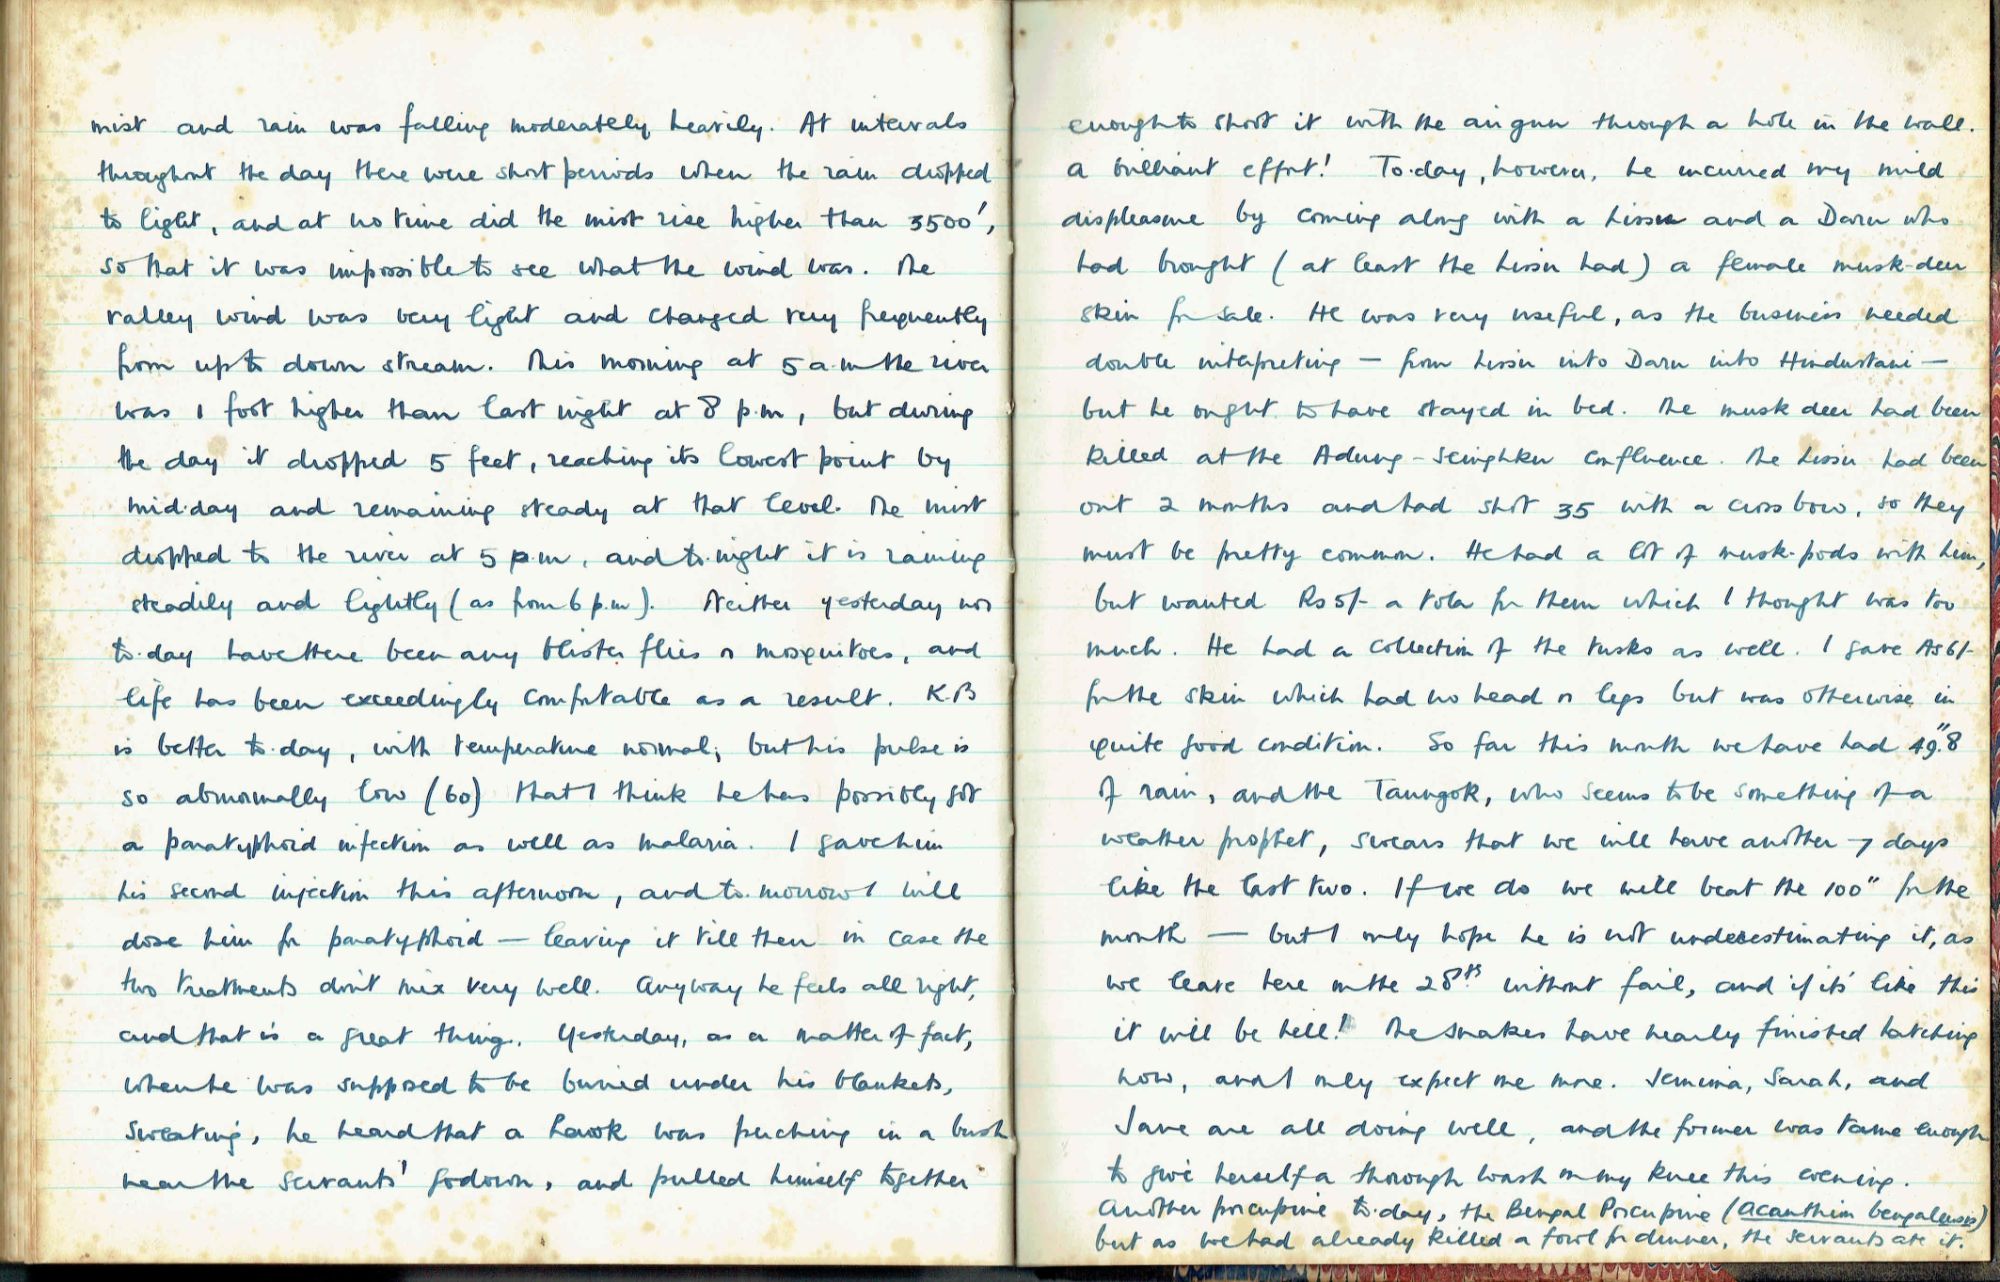 mist and rain was falling moderately heavily. At intervals
throughout the day there were short periods when the rain dropped
to light, and at no time did the mist rise higher than 3500',
so that it was impossible to see what the wind was. The
valley wind was very light and changed very frequently
from up to down stream. This morning at 5 a.m the river
was 1 foot higher than last night at 8 p.m, but during
the day it dropped 5 feet, reaching its lowest point by
mid-day and remaining steady at that level. The mist
dropped to the river at 5 p.m, and to-night it is raining
steadily and lightly (as from 6 p.m). Neither yesterday nor
to-day have there been any blister flies or mosquitoes, and
life has been exceedingly comfortable as a result. K.B
is better to-day, with temperature normal, but his pulse is
so abnormally low (60) that I think he has possibly got
a paratyphoid infection as well as malaria. I gave him
his second injection this afternoon, and to-morrow I will
dose him for paratyphoid — leaving it till then in case the
two treatments don't mix very well. Anyway he feels all right,
and that is a great thing. Yesterday, as a matter of fact,
when he was supposed to be buried under his blankets,
sweating, he heard that a hawk was perching in a bush
near the servants' godown, and pulled himself together
enough to shoot it with the airgun through a hole in the wall.
A brilliant effort! To-day, however, he incurred my mild
displeasure by coming along with a Lissu and a Daru who
had brought (at least the Lissu had) a female musk-deer
skin for sale. He was very useful, as the business needed
double interpreting — from Lissu into Daru into Hindustani —
but he ought to have stayed in bed. The musk deer had been
killed at the Adung-Seinghku confluence. The Lissu had been
out 2 months and had shot 35 with a cross bow, so they
must be pretty common. He had a lot of musk-pods with him,
but wanted Rs 5/- a tola for them which I thought was too
much. He had a collection of the tusks as well. I gave As 6/-
for the skin which had no head or legs but was otherwise in
quite good condition. So far this month we have had 49".8
of rain, and the Taungok, who seems to be something of a
weather prophet, swears that we will have another 7 days
like the last two. If we do we will beat the 100" for the
month — but I only hope he is not underestimating it, as
we leave here on the 28th without fail, and if it's like this
it will be hell! The snakes have nearly finished hatching
now, and I only expect one more. Jemima, Sarah, and
Jane are all doing well, and the former was tame enough
to give herself a thorough wash on my knee this evening.
Another porcupine to-day, the Bengal Porcupine (Acanthion bengalensis)
but as we had already killed a fowl for dinner, the servants ate it.